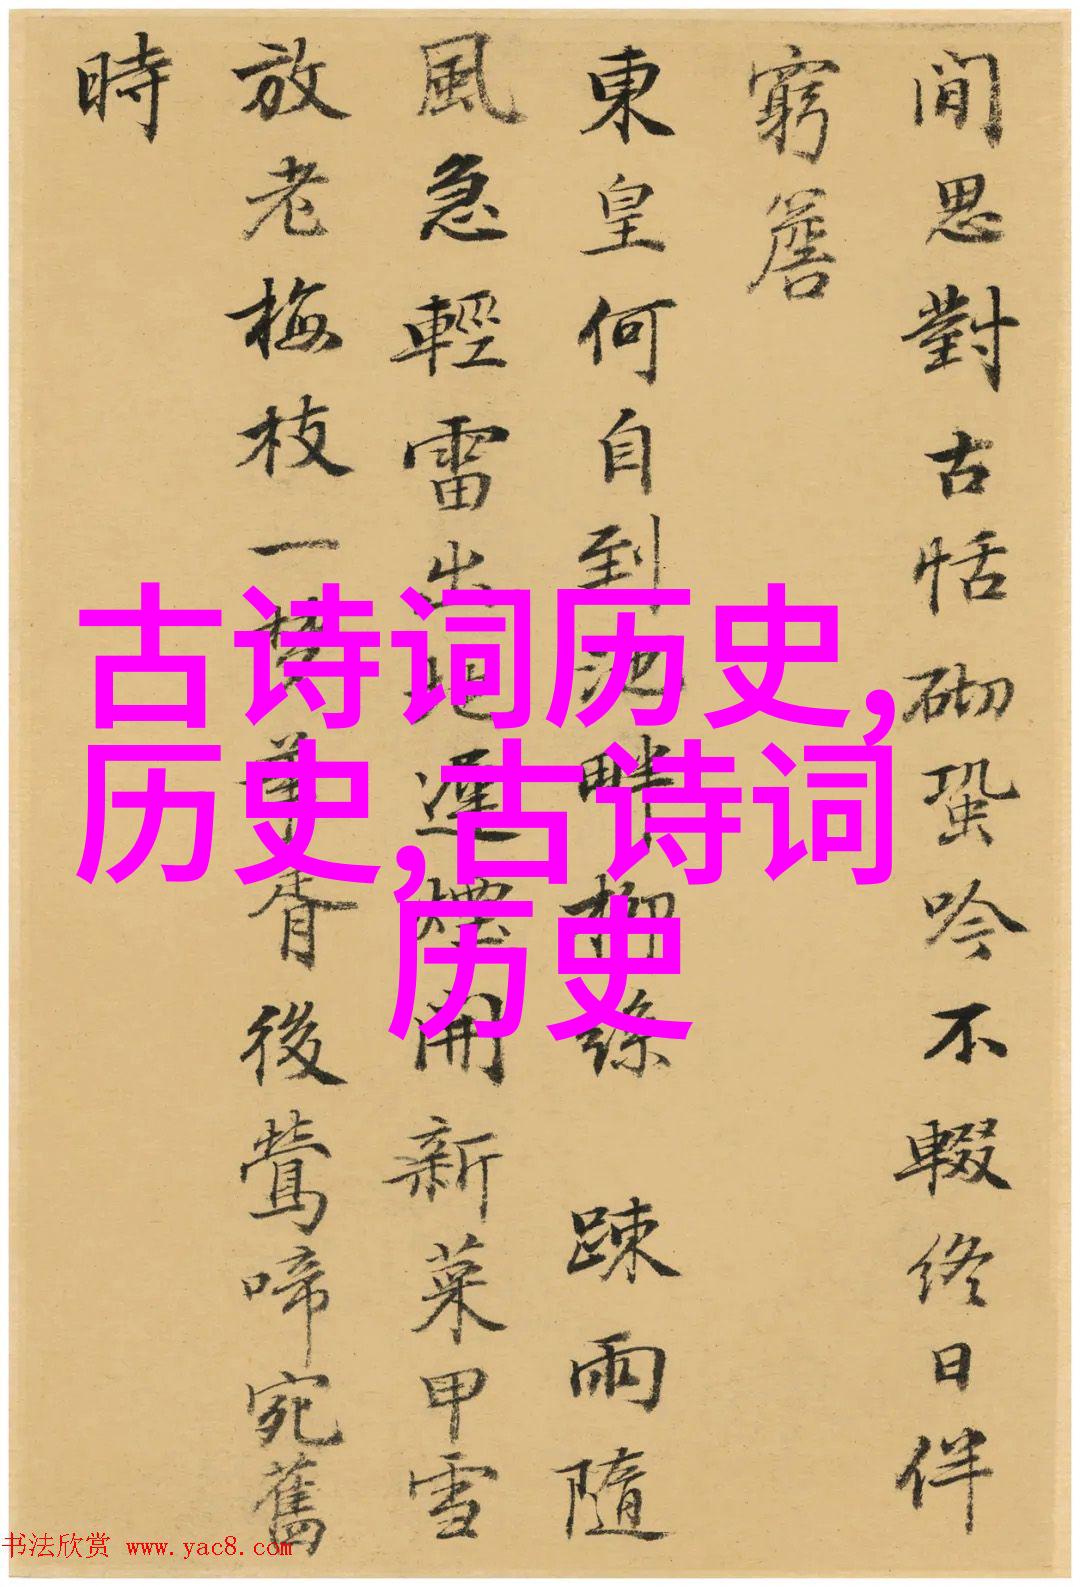 閒思對古恬砌蛩吟不輟終日伴
窮簷
東皇何自到池畔柳絲 踈雨隨
風急輕雷出地遲煙開新菜甲雪
放老梅枝一覺華胥後鶯啼宛舊
時
古诗词历史,
历史,古诗词
历史
书法欣赏 www.yac8.com